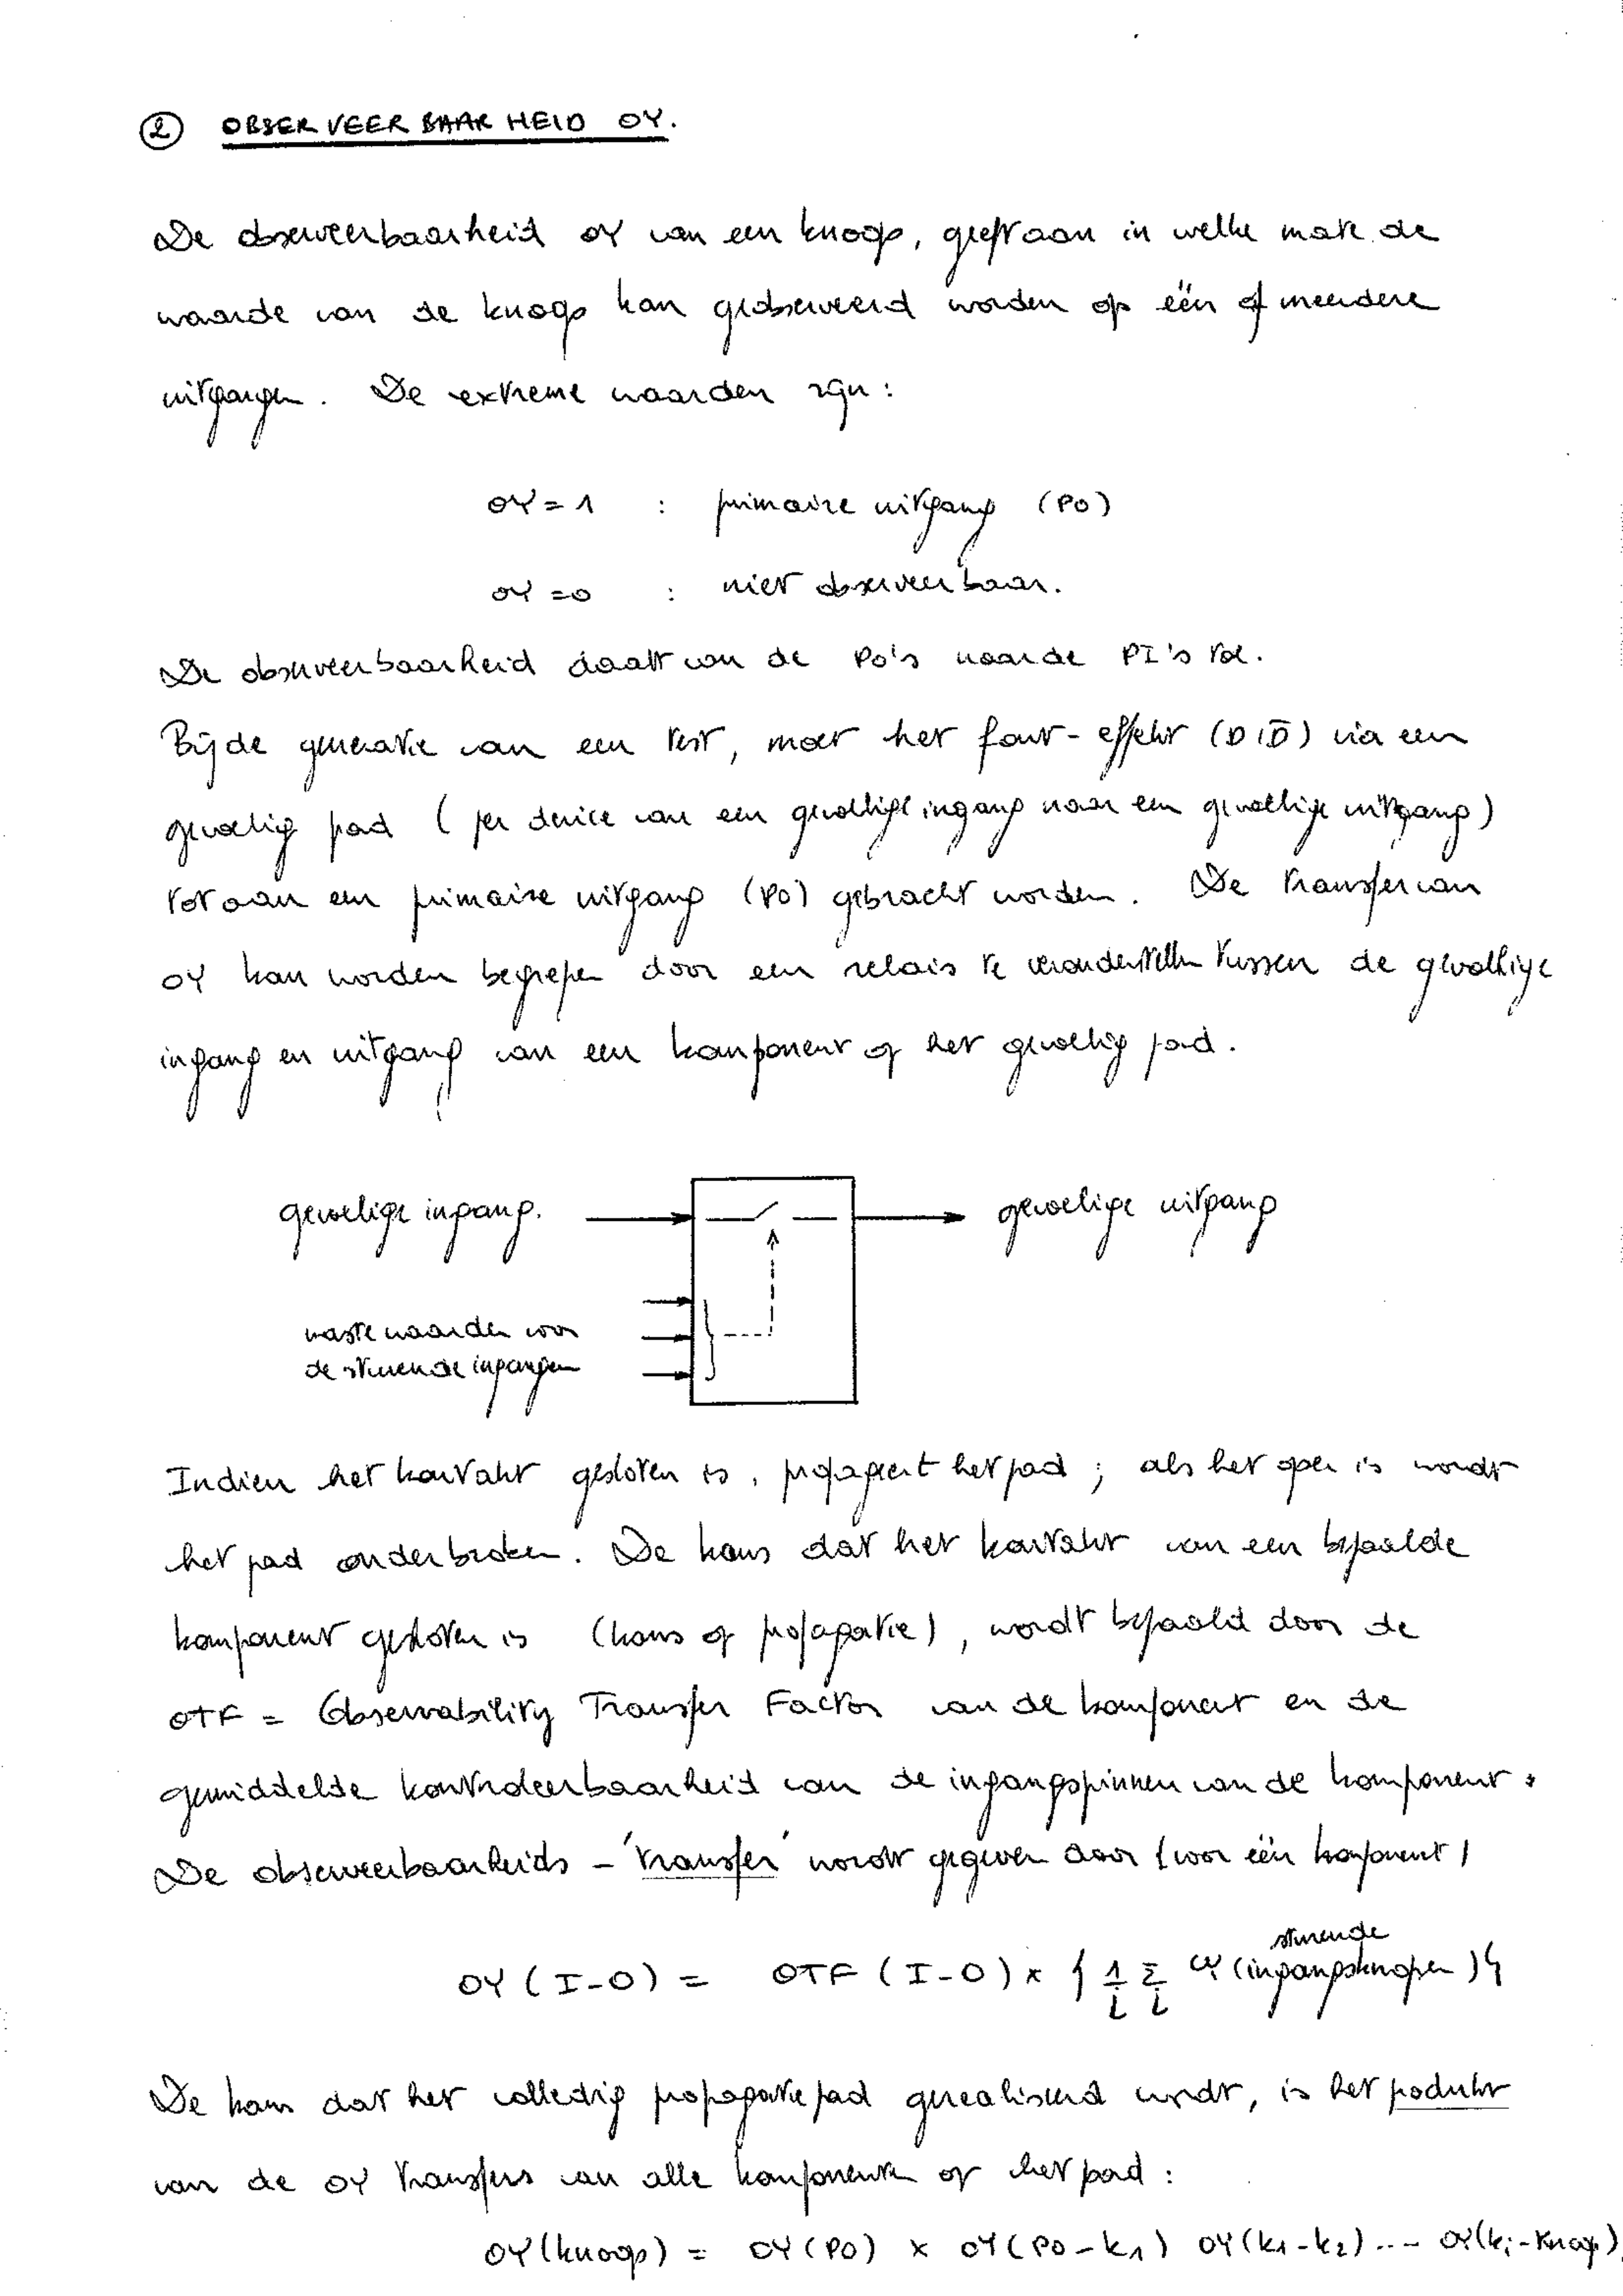 ② OBSERVEERBAARHEID OY.
De observeerbaarheid OY van een knoop, geeft aan in welke mate de
waarde van de knoop kan geobserveerd worden op één of meerdere
uitgangen. De extreme waarden zijn:
OY = 1 : primaire uitgang (PO)
OY = 0 : niet observeerbaar.
De observeerbaarheid daalt van de PO's naar de PI's toe.
Bij de generatie van een test, moet het fout-effekt (D, D̄) via een
gevoelig pad (per device van een gevoelige ingang naar een gevoelige uitgang)
tot aan een primaire uitgang (PO) gebracht worden. De transfer van
OY kan worden begrepen door een relais te veronderstellen tussen de gevoelige
ingang en uitgang van een komponent op het gevoelig pad.
gevoelige ingang. gevoelige uitgang
vaste waarden voor
de sturende ingangen
Indien het kontakt gesloten is, propageert het pad; als het open is wordt
het pad onderbroken. De kans dat het kontakt van een bepaalde
komponent gesloten is (kans op propagatie), wordt bepaald door de
OTF = Observability Transfer Factor van de komponent en de
gemiddelde kontroleerbaarheid van de ingangspinnen van de komponent.
De observeerbaarheids-'transfer' wordt gegeven door (voor één komponent)
OY (I-O) = OTF (I-O) x { 1/i Σ i CY (sturende ingangsknopen) }
De kans dat het volledig propagatiepad gerealiseerd wordt, is het produkt
van de OY transfers van alle komponenten op het pad:
OY (knoop) = OY (PO) x OY (PO-k1) OY (k1-k2) ... OY (ki-knoop).